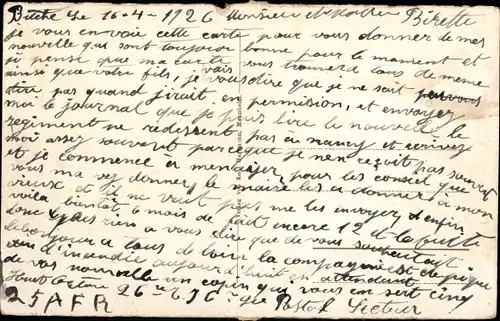 Bitche Le 16-4-1926 Monsieur
je vous envoie cette carte pour vous donner de mes
nouvelle qui sont toujour bonne pour le moment et
je pense que ma carte vous trouvera tous de meme
ainsi que votre fils, je vais vous dire que je ne sait
dire pas quand jirait en permision, et envoyez
moi le journal que je puis lire le nouvelle le
regiment ne redessent pas à nancy et ecrivez
moi assez souvent parceque je nen reçoit pas souvent
et je commence à pour les conseil que
vous ma vez donner, le maire les a donner a mon
vieux et il ne veut pas me les envoyer enfin
voila bientot 6 mois de fait encore 12 et la
donc rien a vous dire que de vous souhaitait
le bonjour a tous de loin la compagnie est de piquet
d'incendie aujourd'huit en attendant
de vos nouvelle un copin qui vous en sert cinq
26e 6